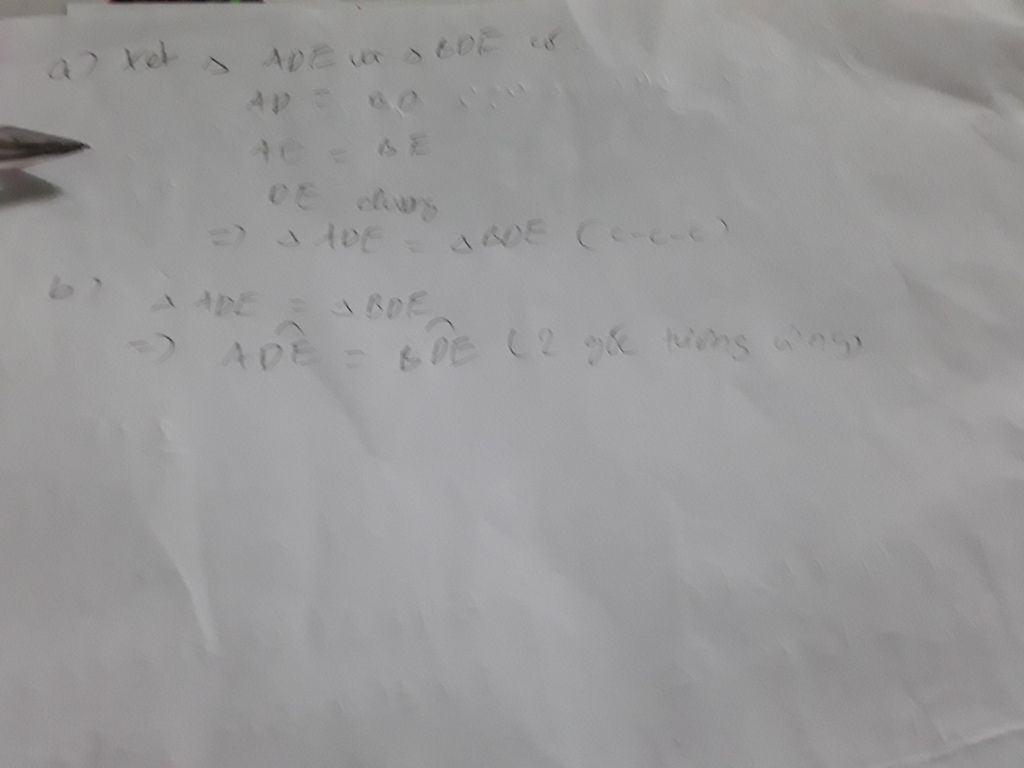 a) Xét △ ADE và △ BDE có
AD = BD
AE = BE
DE chung
=> △ ADE = △ BDE (c-c-c)
b) △ ADE = △ BDE
=> ADE^ = BDE^ (2 góc tương ứng)